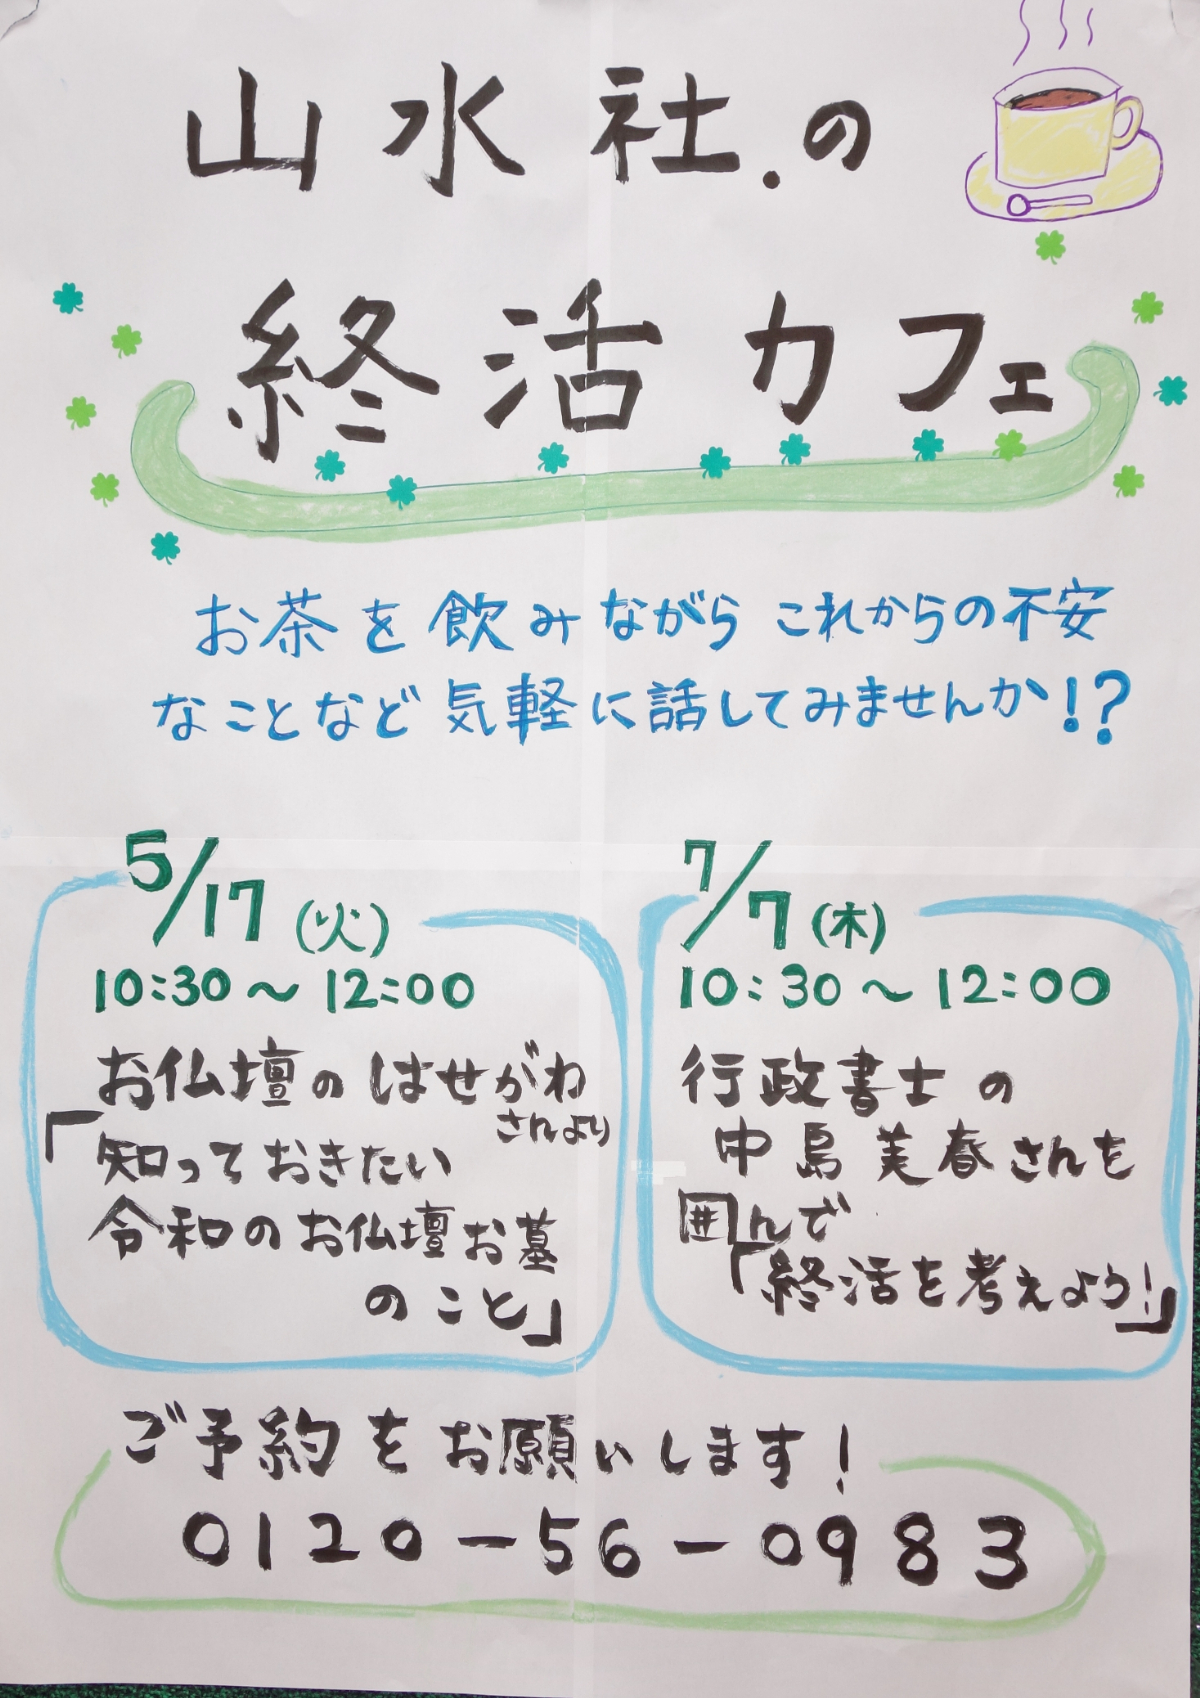 山水社.の
終活カフェ
お茶を飲みながらこれからの不安
なことなど気軽に話してみませんか!?
5/17(火)
10:30〜12:00
お仏壇のはせがわ
さんより
「知っておきたい
令和のお仏壇お墓
のこと」
7/7(木)
10:30〜12:00
行政書士の
中島美春さんを
囲んで
「終活を考えよう!」
ご予約をお願いします!
0120-56-0983